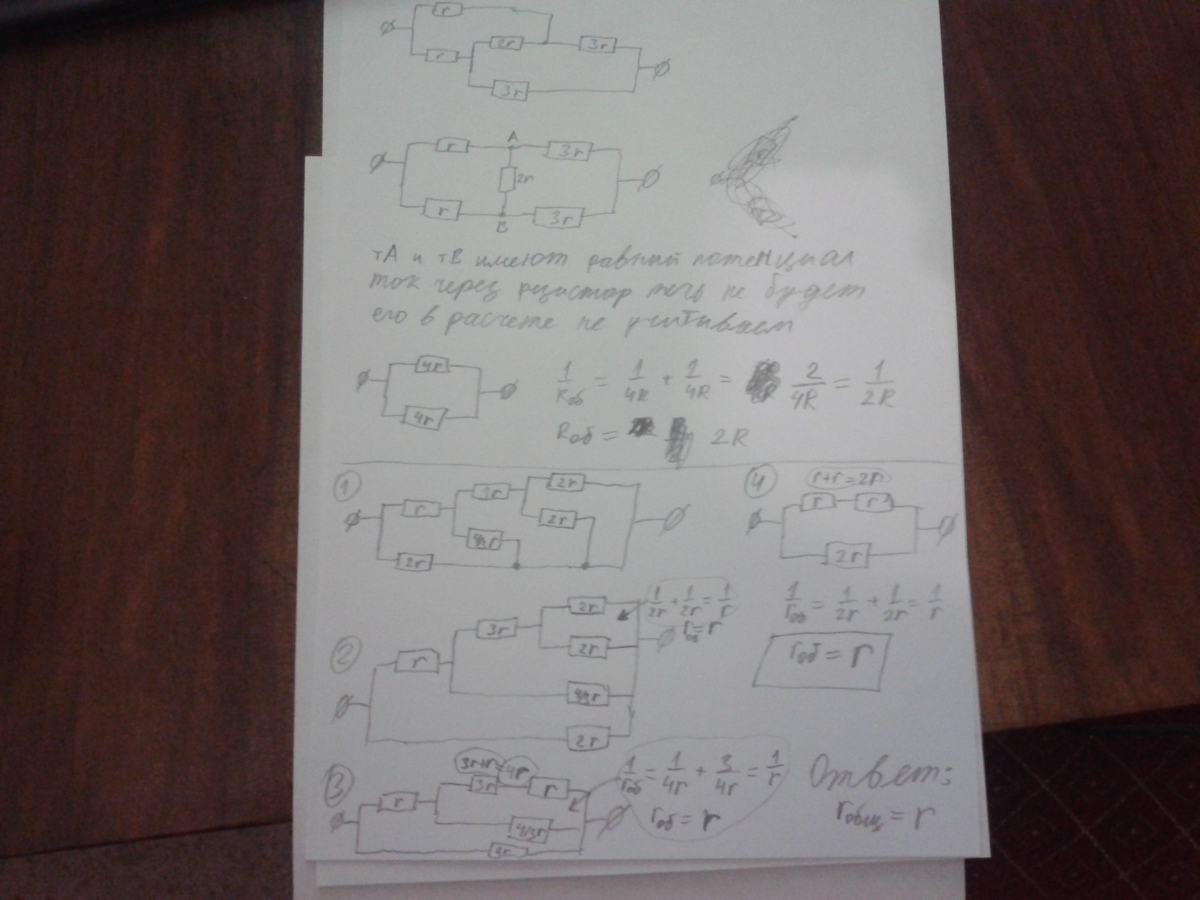 r
r
2r
3r
3r
A
r
3r
2r
r
B
3r
тА и тВ имеют равный потенциал
ток через резистор течь не будет
его в расчете не учитываем
4r
4r
1/Rоб = 1/4R + 1/4R = 2/4R = 1/2R
Rоб = 2R
1
r
3r
2r
2r
4/3r
2r
4
r+r=2r
r
r
2r
1/rоб = 1/2r + 1/2r = 1/r
rоб = r
2
r
3r
2r
2r
4/3r
2r
1/2r + 1/2r = 1/r
rоб = r
3
3r+r=4r
r
3r
r
4/3r
1/rоб = 1/4r + 3/4r = 1/r
rоб = r
Ответ:
rобщ = r